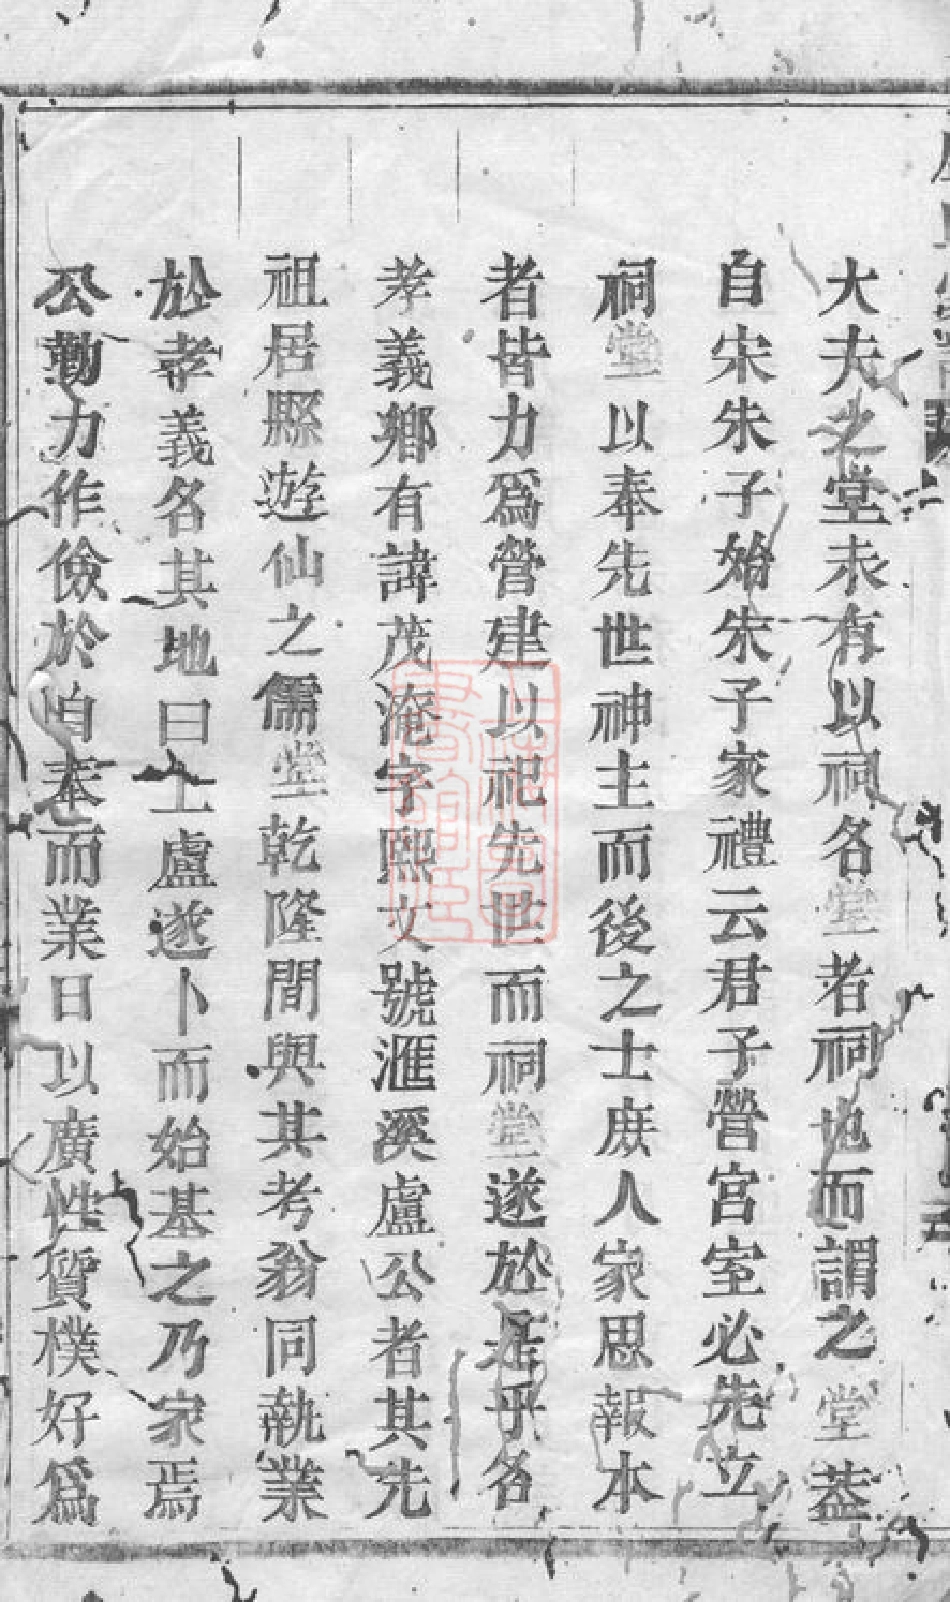 大夫之堂未有以祠名堂者祠也而謂之堂葢
自宋朱子始朱子家禮云君子營宮室必先立
祠堂以奉先世神主而後之士庶人家思報本
者皆力爲營建以祀先世而祠堂遂於是乎名
孝義鄉有諱茂淹字熙文號滙溪盧公者其先
祖居縣遊仙之儒堂乾隆間與其考翁同執業
於孝義名其地曰上盧遂卜而始基之乃家焉
公勤力作儉於自奉而業日以廣性質樸好爲